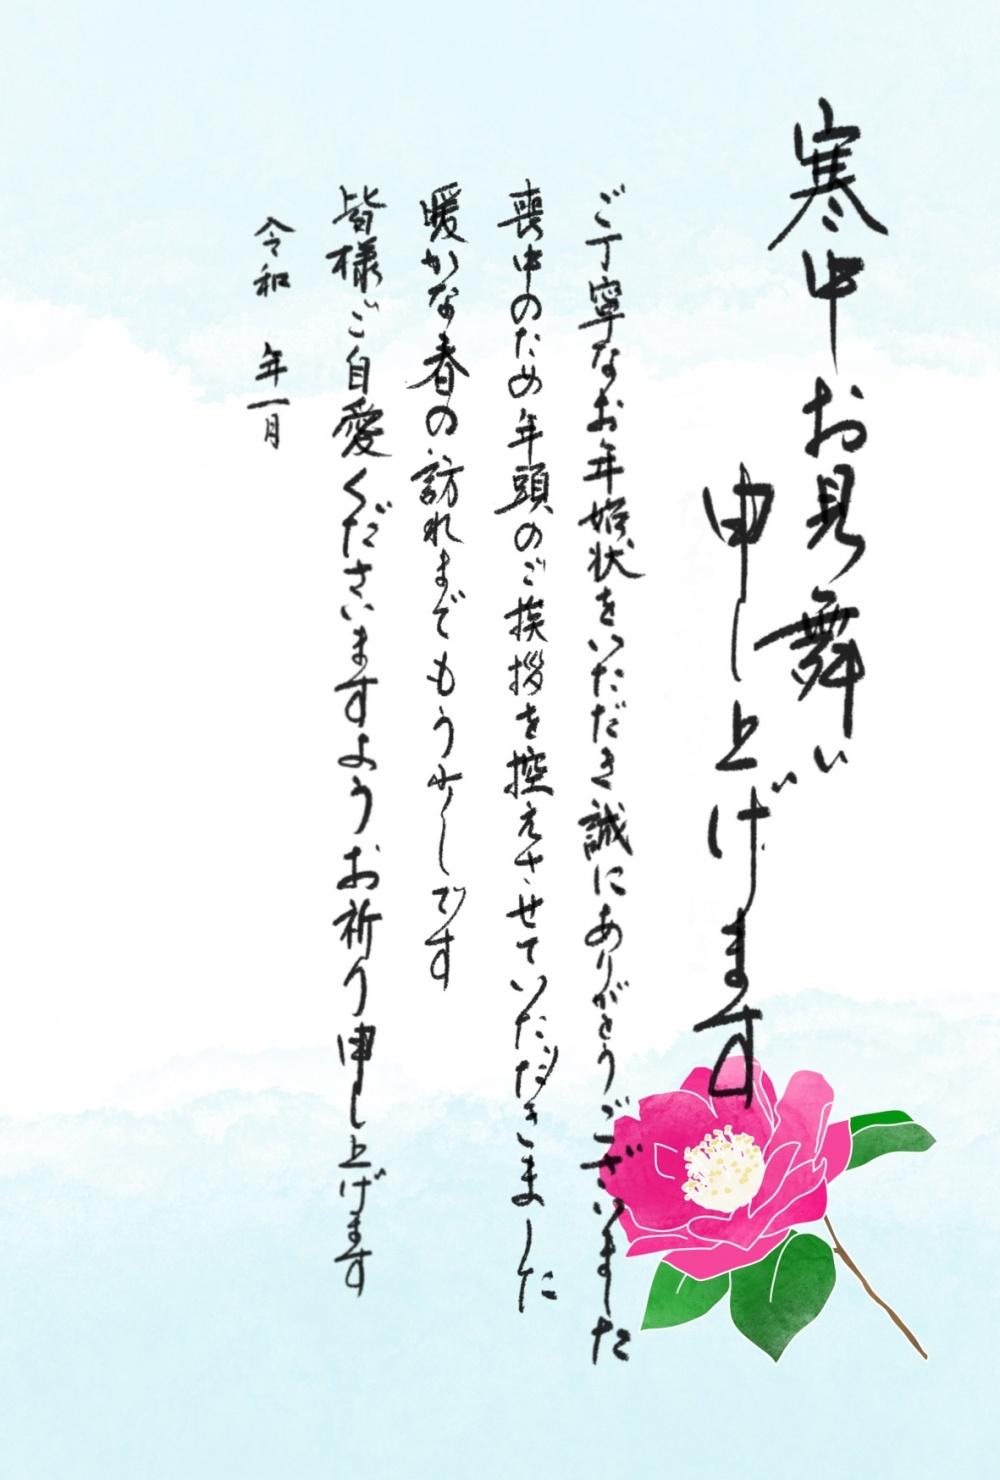 寒中お見舞い
申し上げます
ご丁寧なお年賀状をいただき誠にありがとうございました
喪中のため年頭のご挨拶を控えさせていただきました
暖かな春の訪れまでもう少しです
皆様ご自愛くださいますようお祈り申し上げます
令和 年一月